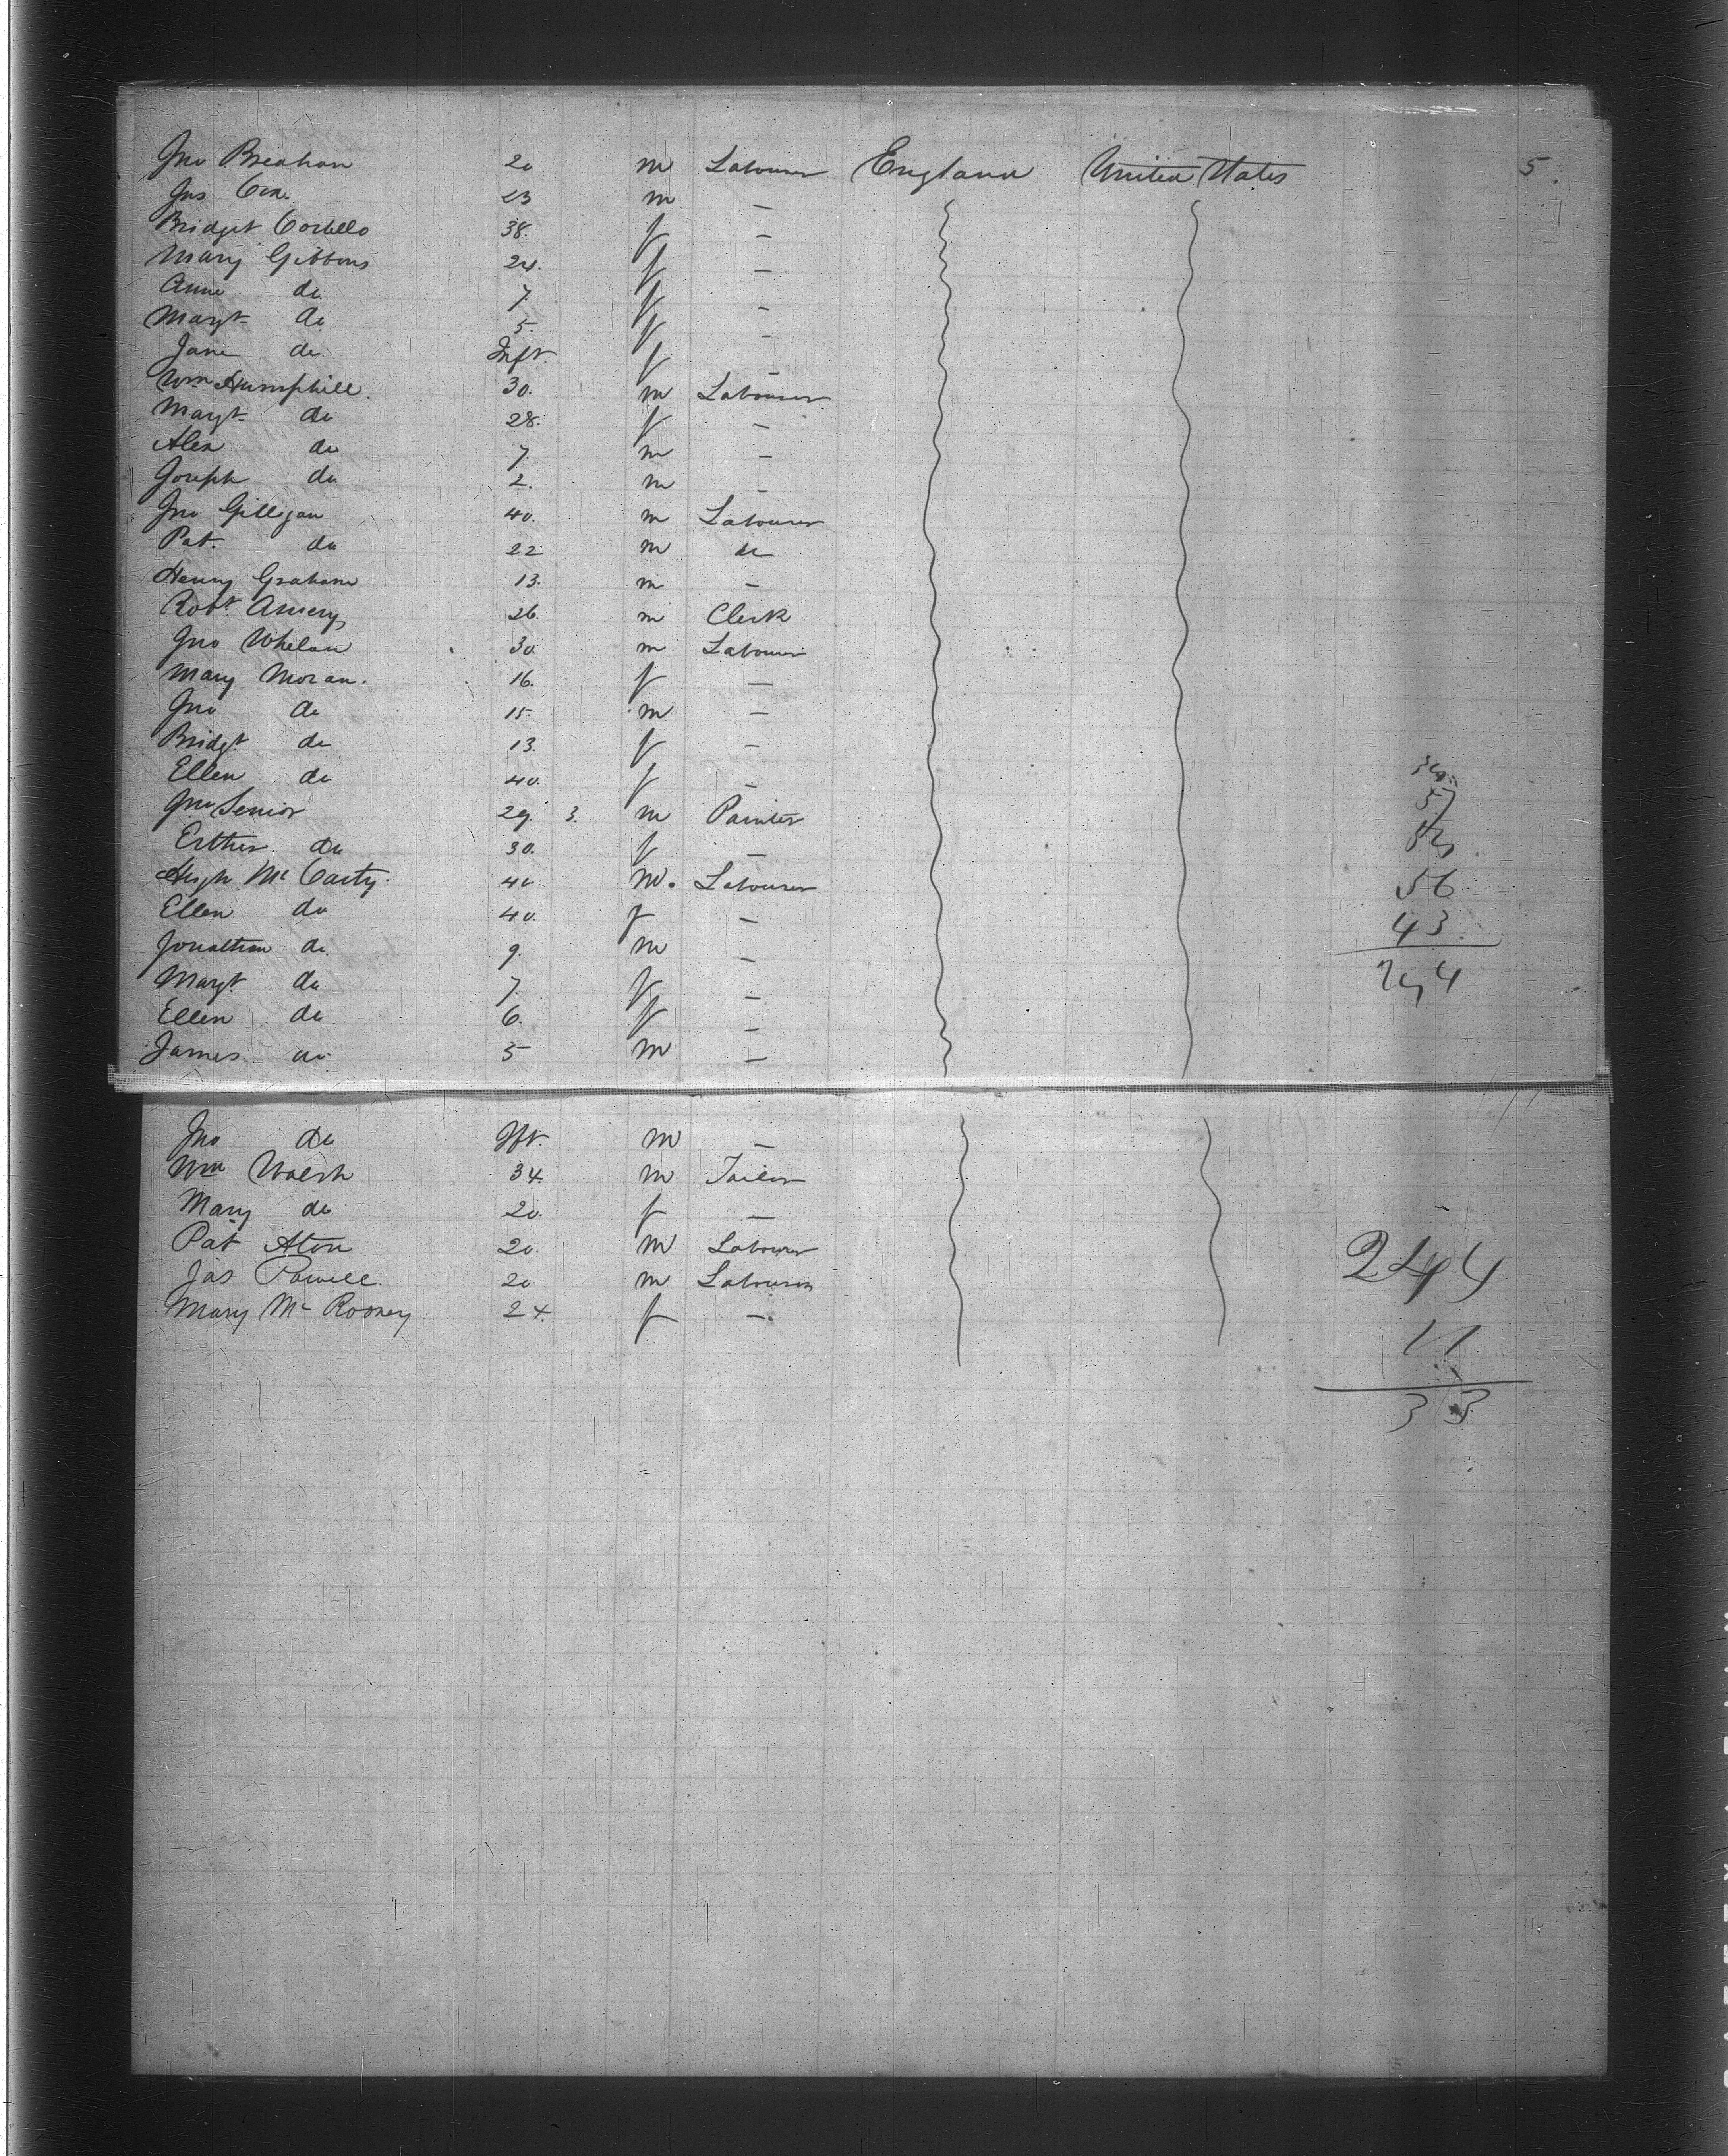 Jno Breahan 20 m Labourer England United States 5
Jas Cox. 23 m —
Bridget Costello 38. f —
Mary Gibbons 24. f —
Anne do. 7. f —
Margt. do 5. f —
Jane do. Inft. f —
Wm Humphill. 30. m Labourer
Margt. do 28. f —
Alex do 7. m —
Joseph do 2. m —
Jno Gilligan 40. m Labourer
Pat. do 22 m do
Henry Graham 13. m —
Robt. Amery 26. m Clerk
Jno Whelan 30 m Labourer
Mary Moran. 16. f —
Jno do 15. m —
Bridgt. do 13. f —
Ellen do 40. f —
Jno Senior 29. 3. m Painter
Esther. do 30. f —
Hugh Mc Carty. 40 m. Labourer
Ellen do 40. f —
Jonathan do. 9. m —
Margt. do 7. f —
Ellen do 6. f —
James do. 5 m —
57
56
43
Jno do Ift. m —
Wm Walsh 34. m Tailor
Mary do 20. f —
Pat Aton 20. m Labourer
Jas Powell. 20 m Labourer
Mary Mc Rooney 24. f —
244
11
33